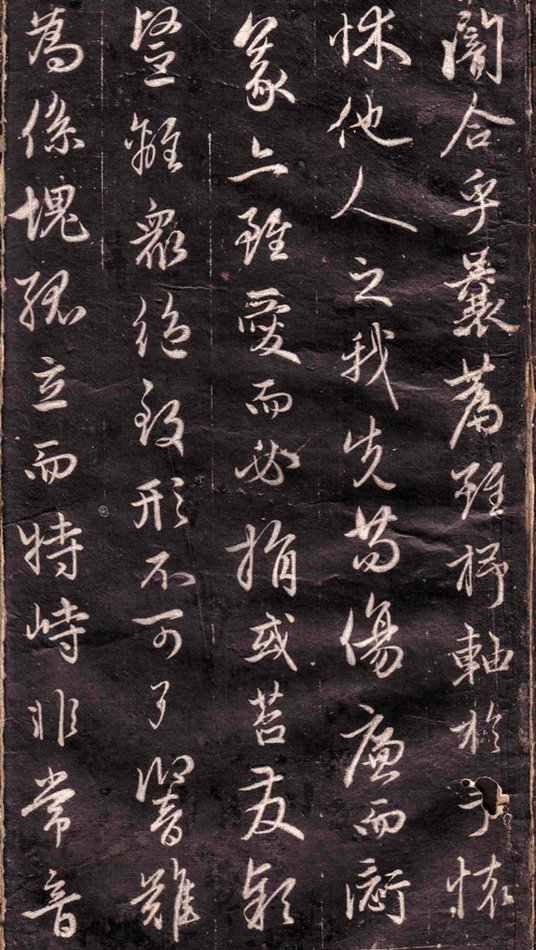 闇合乎曩篇雖杼軸於予懷
怵他人之我先苟傷廉而愆
義亦雖愛而必捐或苕發穎
豎離眾絕致形不可響難
為係塊孤立而特峙非常音